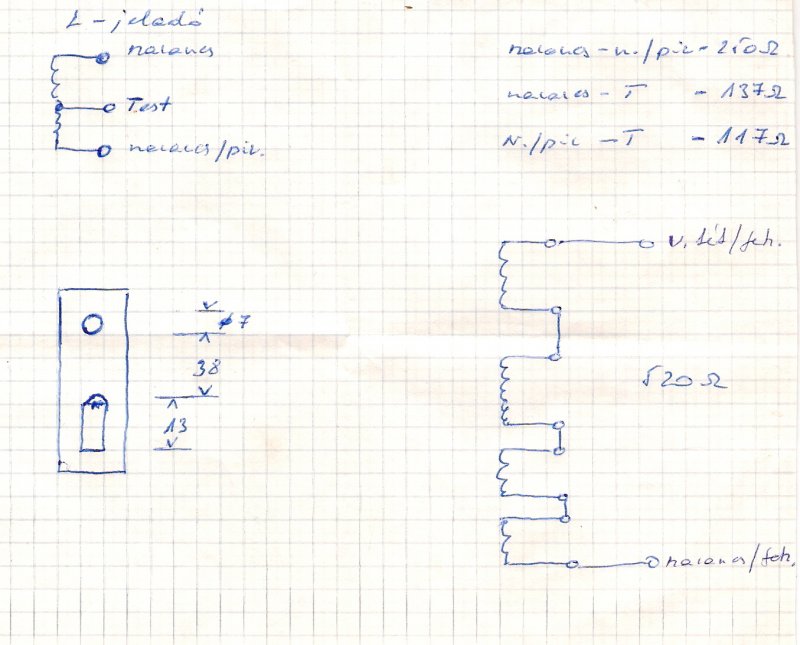 L - jeladó
narancs
Test
narancs/pir.
narancs - n./pir - 250Ω
narancs - T - 137Ω
N./pir - T - 117Ω
v. sét/feh.
520 Ω
narancs/feh.
ø7
38
13